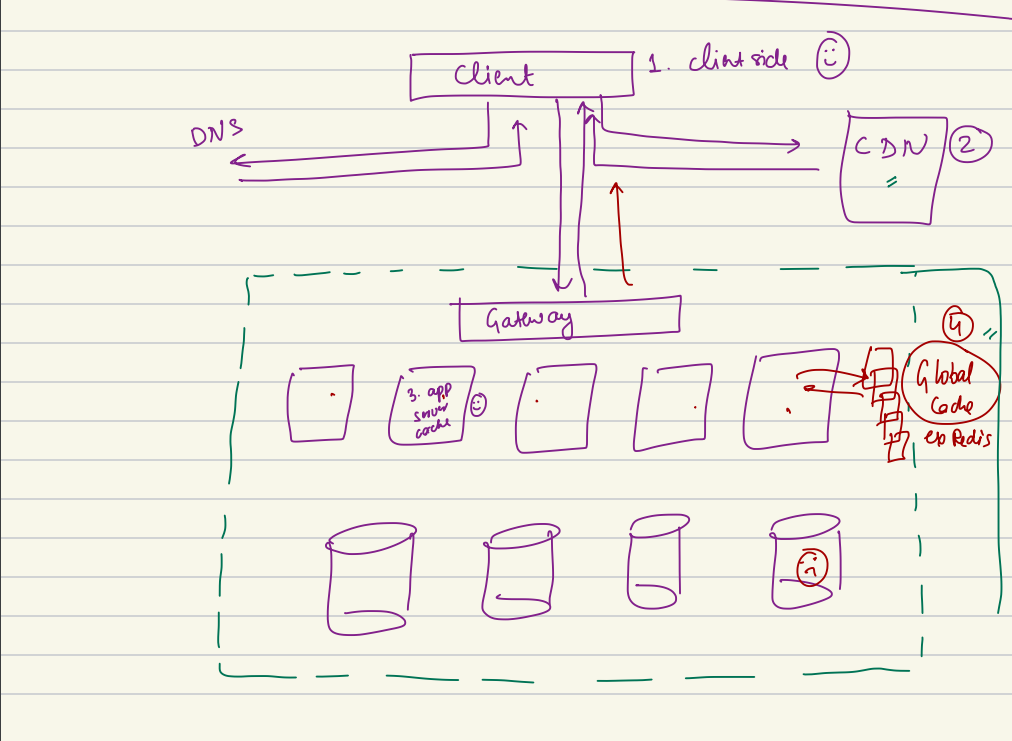 Client
1. client side
DNS
CDN
2
Gateway
4
3. app
server
cache
Global
Cache
Redis